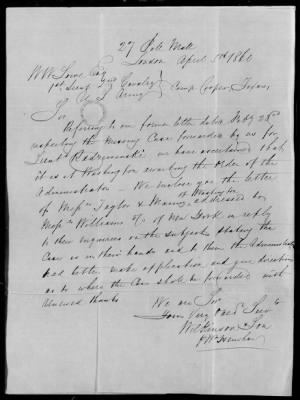 27 Pall Mall
London April 5th 1860
W W Lowe Esq
1st Lieut 2nd Cavalry
U S Army Camp Cooper Texas
Sir
Referring to our former letter dated Feby 28th
respecting the missing Case forwarded by us for
Lieut Radziminski we have ascertained that
it is at Washington awaiting the order of the
Administrator - We inclose you the letter
of Messrs Taylor & Maury of Washington addressed to
Messrs Williams & Co of New York in reply
to their inquiries on the subject stating the
Case is in their hands and to them the Administrator
had better make application and give directions
as to where the Case shall be forwarded with
renewed thanks
We are Sir
Your Very Obed Servts
Wilkinson & Son